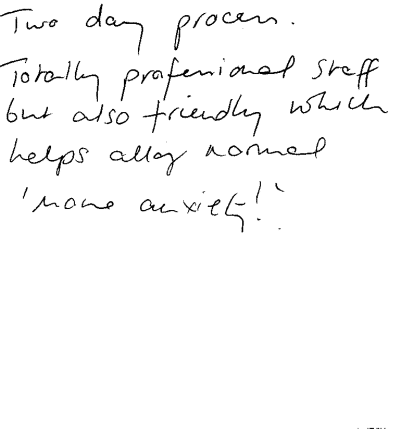 Two day process.
Totally professional staff
but also friendly which
helps allay normal
'move anxiety!'